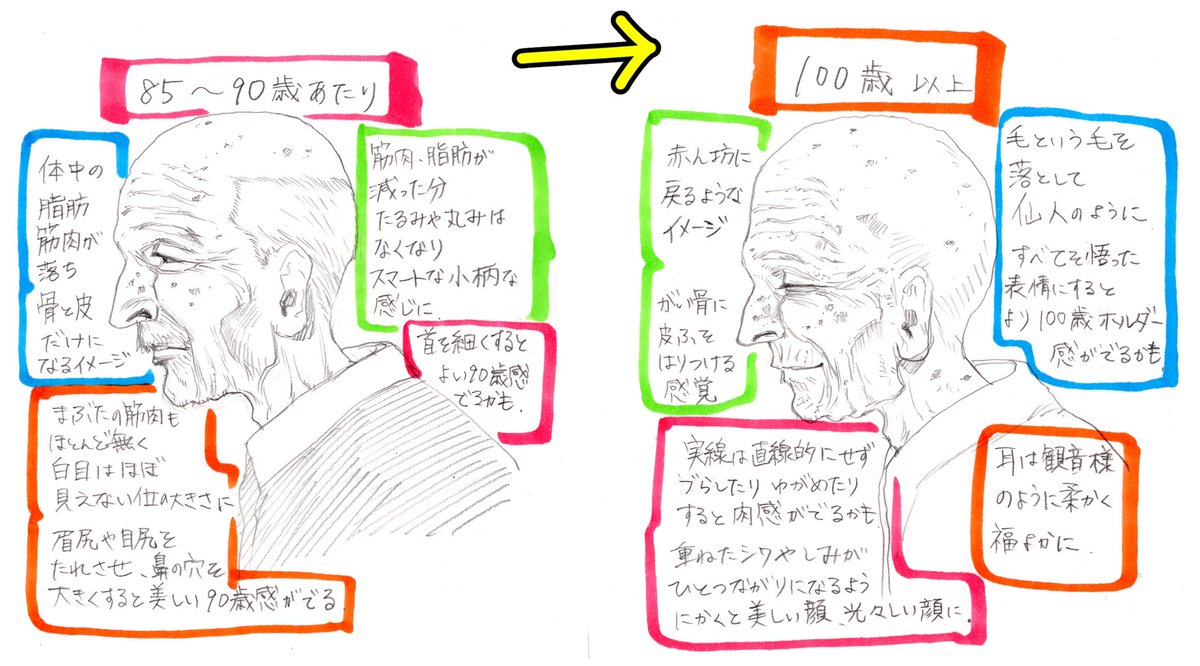 85〜90歳あたり
体中の
脂肪
筋肉が
落ち
骨と皮
だけに
なるイメージ
筋肉、脂肪が
減った分
たるみや丸みは
なくなり
スマートな小柄な
感じに.
首を細くすると
よい90歳感
でるかも.
まぶたの筋肉も
ほとんど無く
白目はほぼ
見えない位の大きさに
眉尻や目尻を
たれさせ、鼻の穴を
大きくすると美しい90歳感がでる.
100歳 以上
赤ん坊に
戻るような
イメージ
がい骨に
皮ふを
はりつける
感覚
毛という毛を
落として
仙人のように
すべてを悟った
表情にすると
より100歳ホルダー
感がでるかも
実線は直線的にせず
ブらしたり ゆがめたり
すると肉感がでるかも
重ねたシワやしみが
ひとつながりになるよう
にかくと美しい顔、光々しい顔に.
耳は観音様
のように柔かく
福よかに.